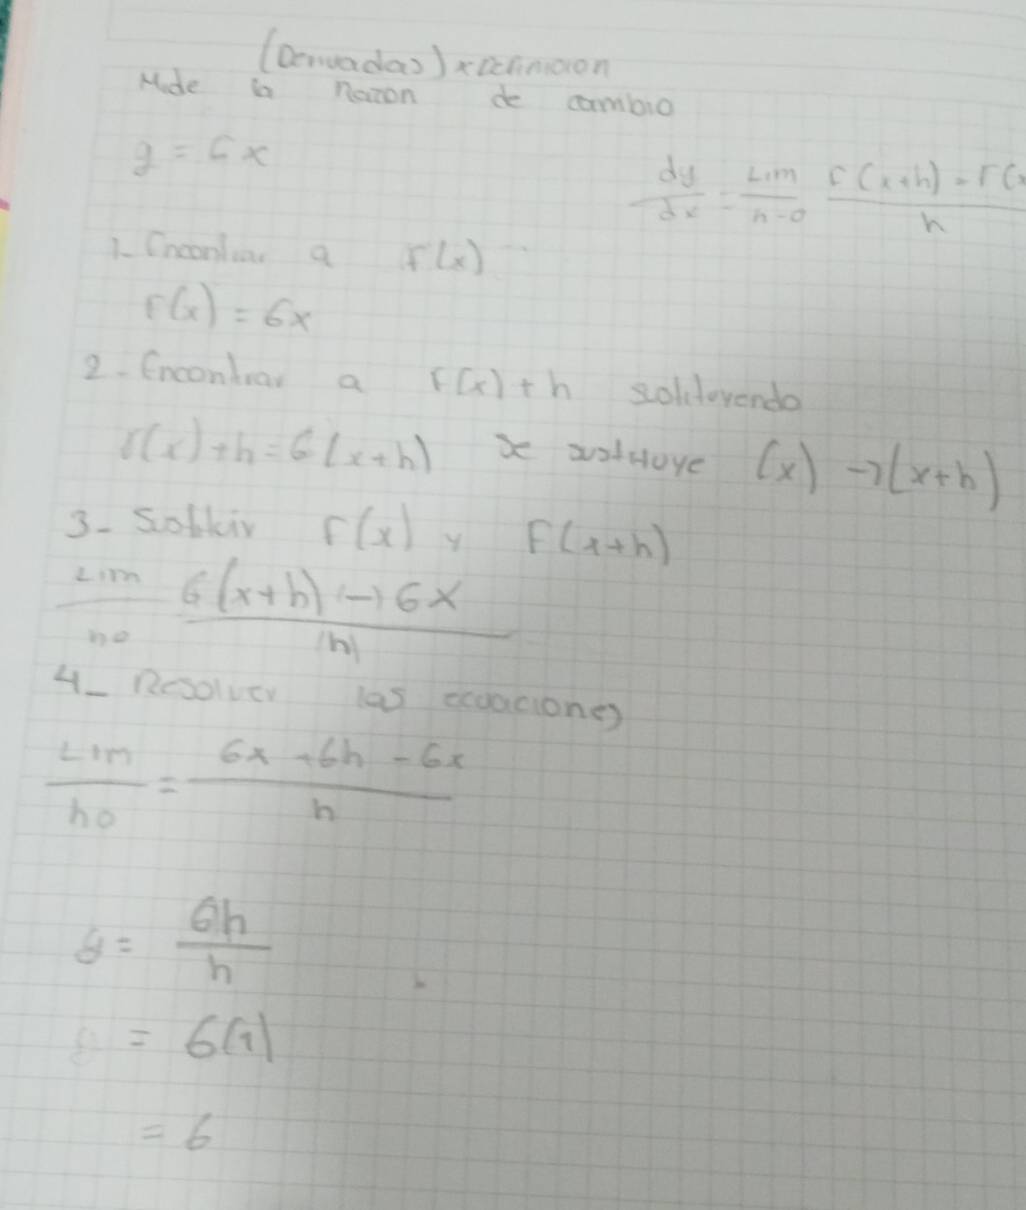 (Derivadas) x Definicion
Mide la Razon de cambio
y = 6x
dy/dx = Lim h→0 F(x+h) - F(x / h
1- Encontrar a F(x)
F(x) = 6x
2- Encontrar a F(x)+h
F(x)+h = 6(x+h) se (x) → (x+h)
3- F(x) y F(x+h)
Lim h0 6(x+h) (-) 6x / (h)
4- Resolver las ecuaciones
Lim h0 = 6x +6h - 6x / h
y = 6h / h
= 6(1)
= 6